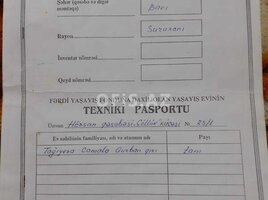 Şəhər (qəsəbə və digər
məntəqə) Bakı
Rayon Suraxanı
İnventar nömrəsi
Qeyd nömrəsi
FƏRDİ YAŞAYIŞ FONDUNA DAXİL OLAN YAŞAYIŞ EVİNİN
TEXNİKİ PASPORTU
Hövsan qəsəbəsi, küçəsi №
Ev sahibinin familiyası, adı və atasının adı Payı
Tağıyeva Qurban qızı tam